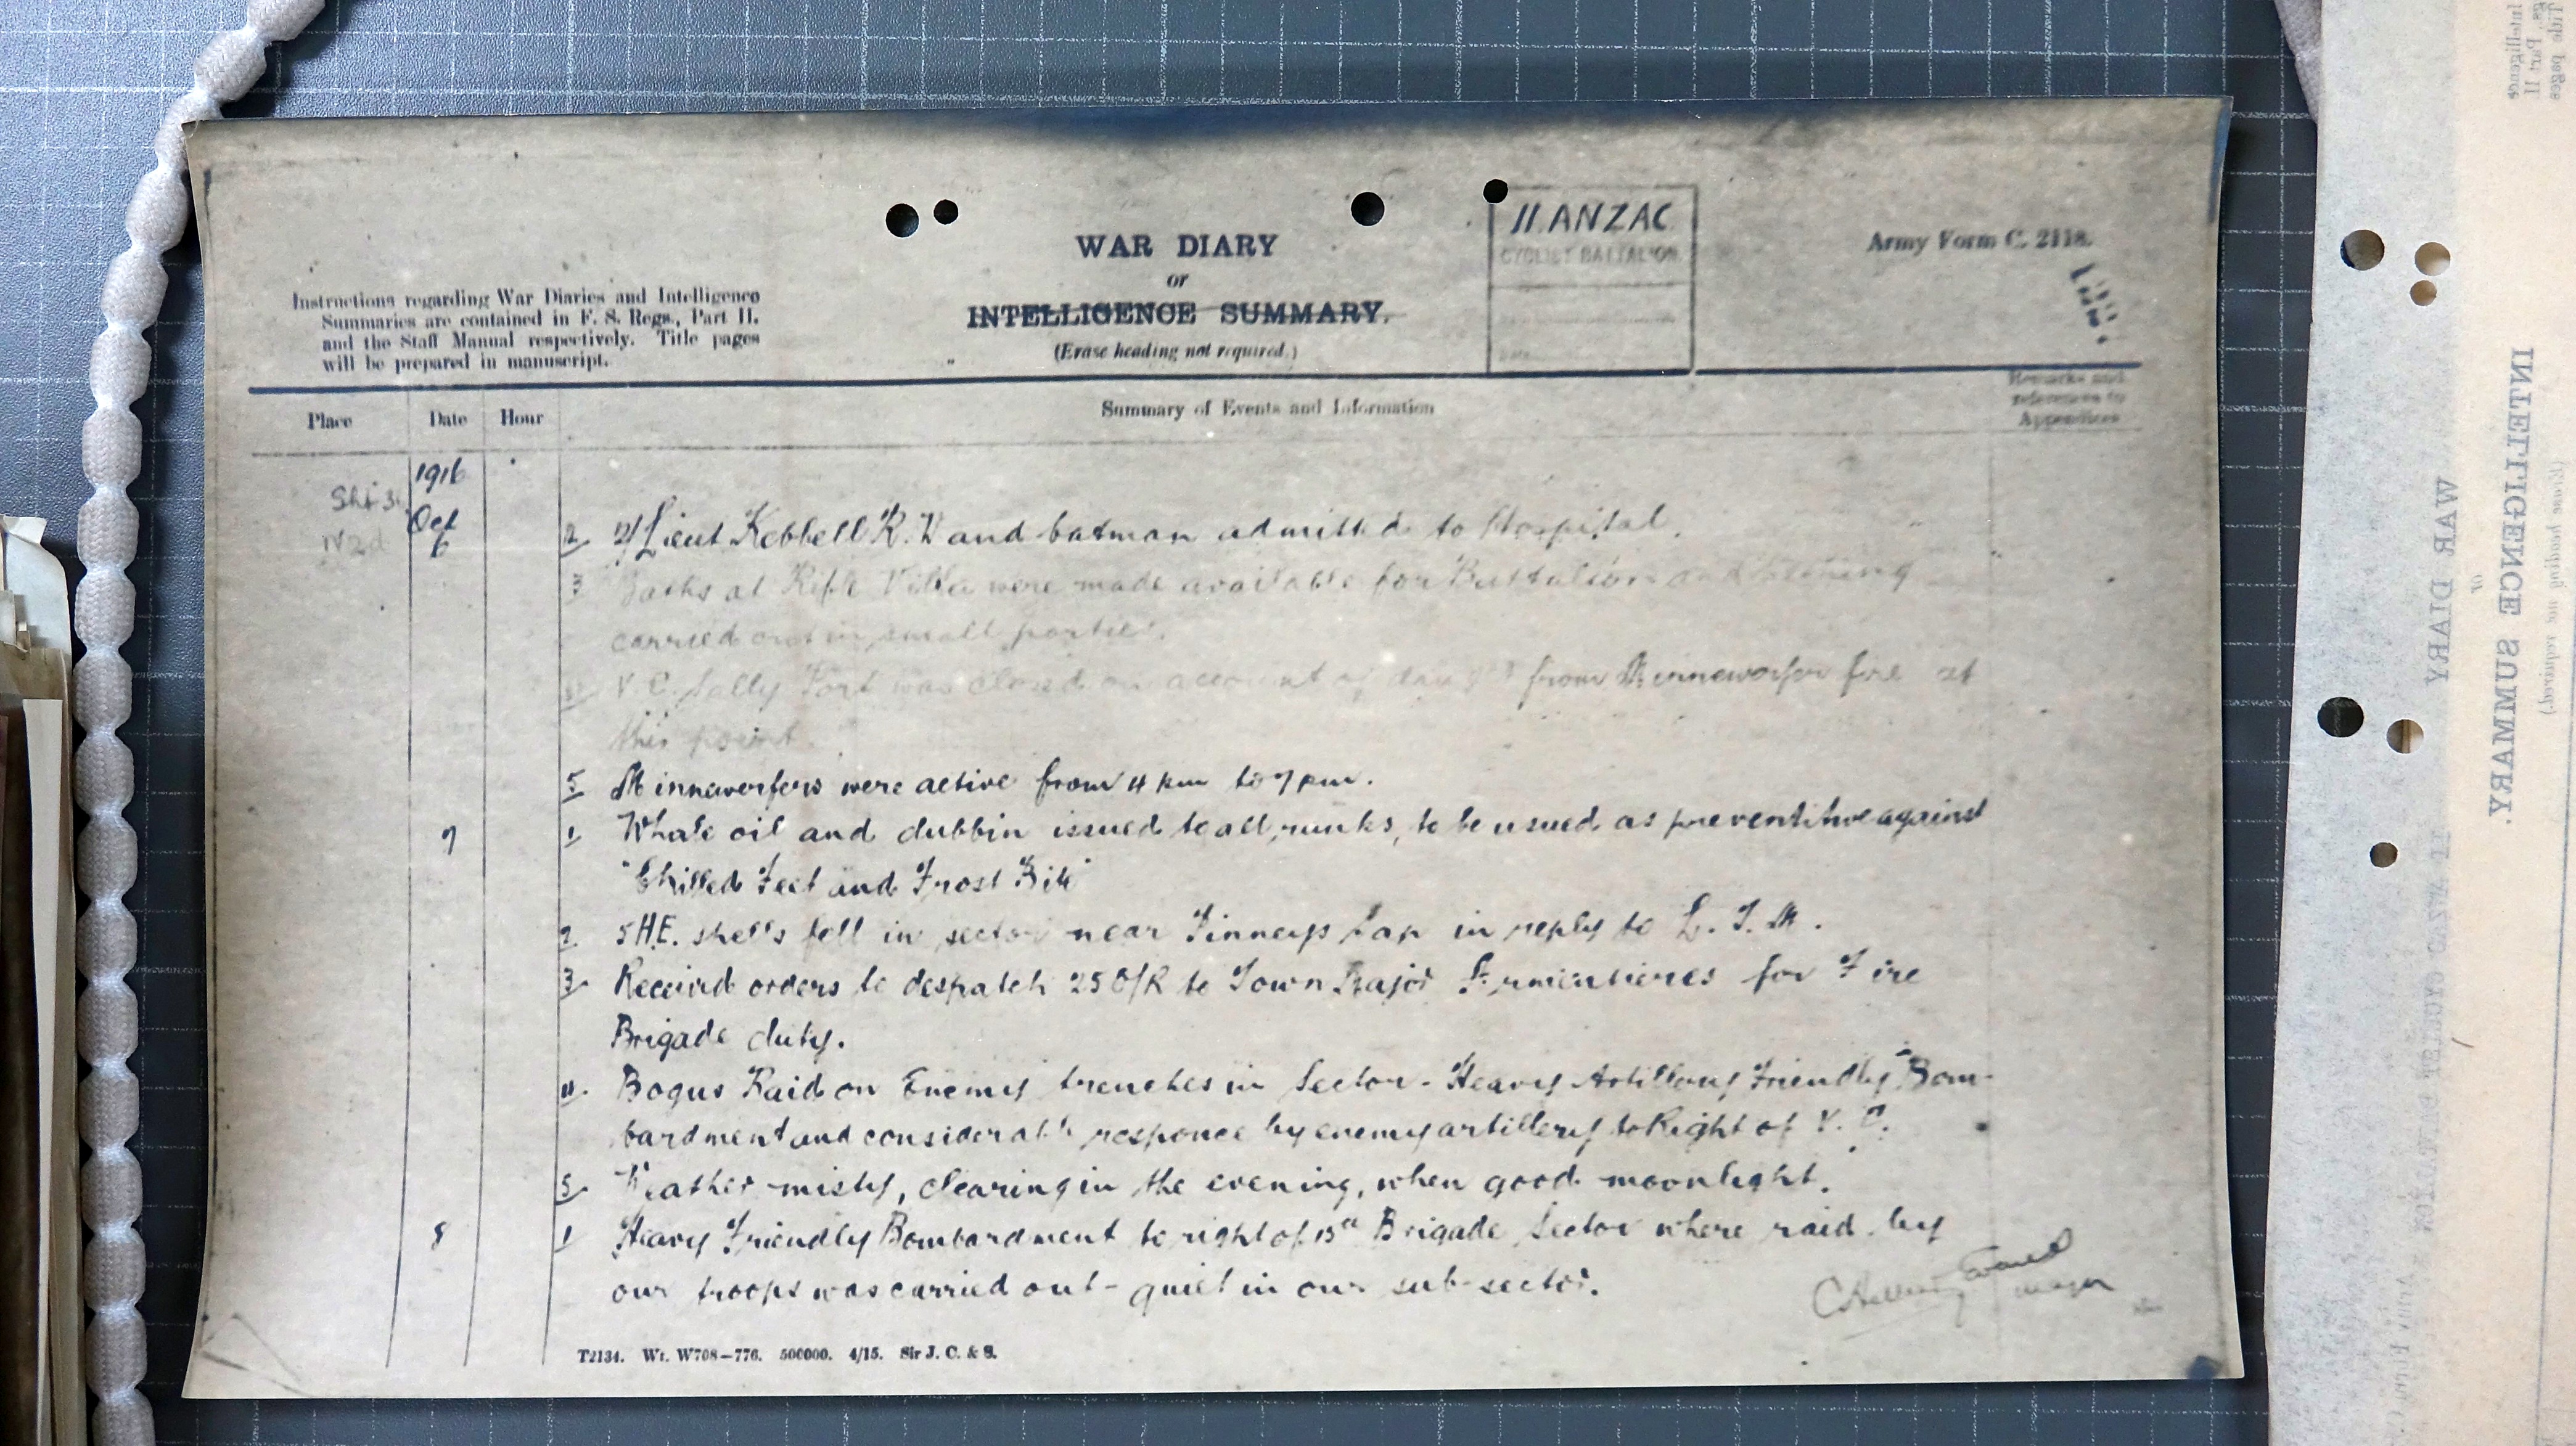 Instructions regarding War Diaries and Intelligence
Summaries are contained in F. S. Regs., Part II.
and the Staff Manual respectively. Title pages
will be prepared in manuscript.
WAR DIARY
or
INTELLIGENCE SUMMARY.
(Erase heading not required.)
II ANZAC
CYCLIST BATTALION
Army Form C. 2118.
Place
Date
Hour
Summary of Events and Information
Remarks and
references to
Appendices
1916
Oct
6
2 2/Lieut Kebbell R. W and batman admitted to Hospital.
3 Baths at Rifle Villa were made available for Battalion and bathing
carried out in small parties.
4 V.C. Sally Port was closed on account of danger from Minnewerfer fire at
this point.
5 Minnewerfers were active from 4 pm to 7 pm.
7 1 Whale oil and dubbin issued to all ranks, to be used as preventitive against
"Chilled Feet and Frost Bite"
2. 5 H.E. shells fell in sector near Tinneys Gap in reply to L. T. M.
3. Received orders to despatch 25 O/R to Town Major Armentieres for Fire
Brigade duty.
4. Bogus Raid on Enemy trenches in Sector - Heavy Artillery Friendly Bom-
bardment and considerable responce by enemy artillery to Right of V. C.
5. Weather misty, clearing in the evening, when good moonlight.
8 1 Heavy Friendly Bombardment to right of Brigade Sector where raid by
our troops was carried out - quiet in our sub-sector.
Major
T2134. Wt. W708-776. 500000. 4/15. Sir J. C. & S.
Title pages
Part II
Intelligence
WAR DIARY
or
INTELLIGENCE SUMMARY.
(Erase heading not required)